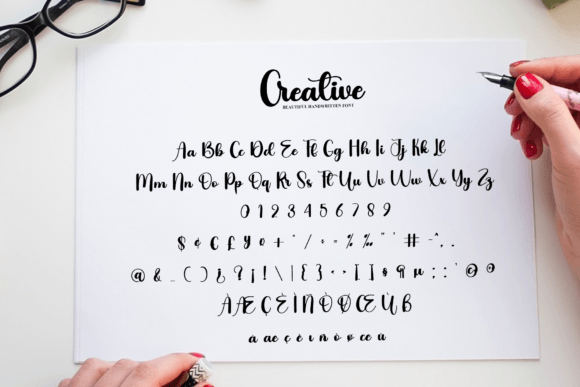 Creative
BEAUTIFUL HANDWRITTEN FONT
Aa Bb Cc Dd Ee Ff Gg Hh Ii Jj Kk Ll
Mm Nn Oo Pp Qq Rr Ss Tt Uu Vv Ww Xx Yy Zz
0 1 2 3 4 5 6 7 8 9
$ ¢ £ £ ¥ ¤ + * / ÷ = % ‰ " ' # - ^ , .
@ & _ ( ) ¿ ? ¡ ! \ | { } · • [ ] § ¶ µ : ; ' © ®
À Æ Ç È Ì Ñ Ò Ø Œ Ù
à æ ç è ì ñ ò ø œ ù